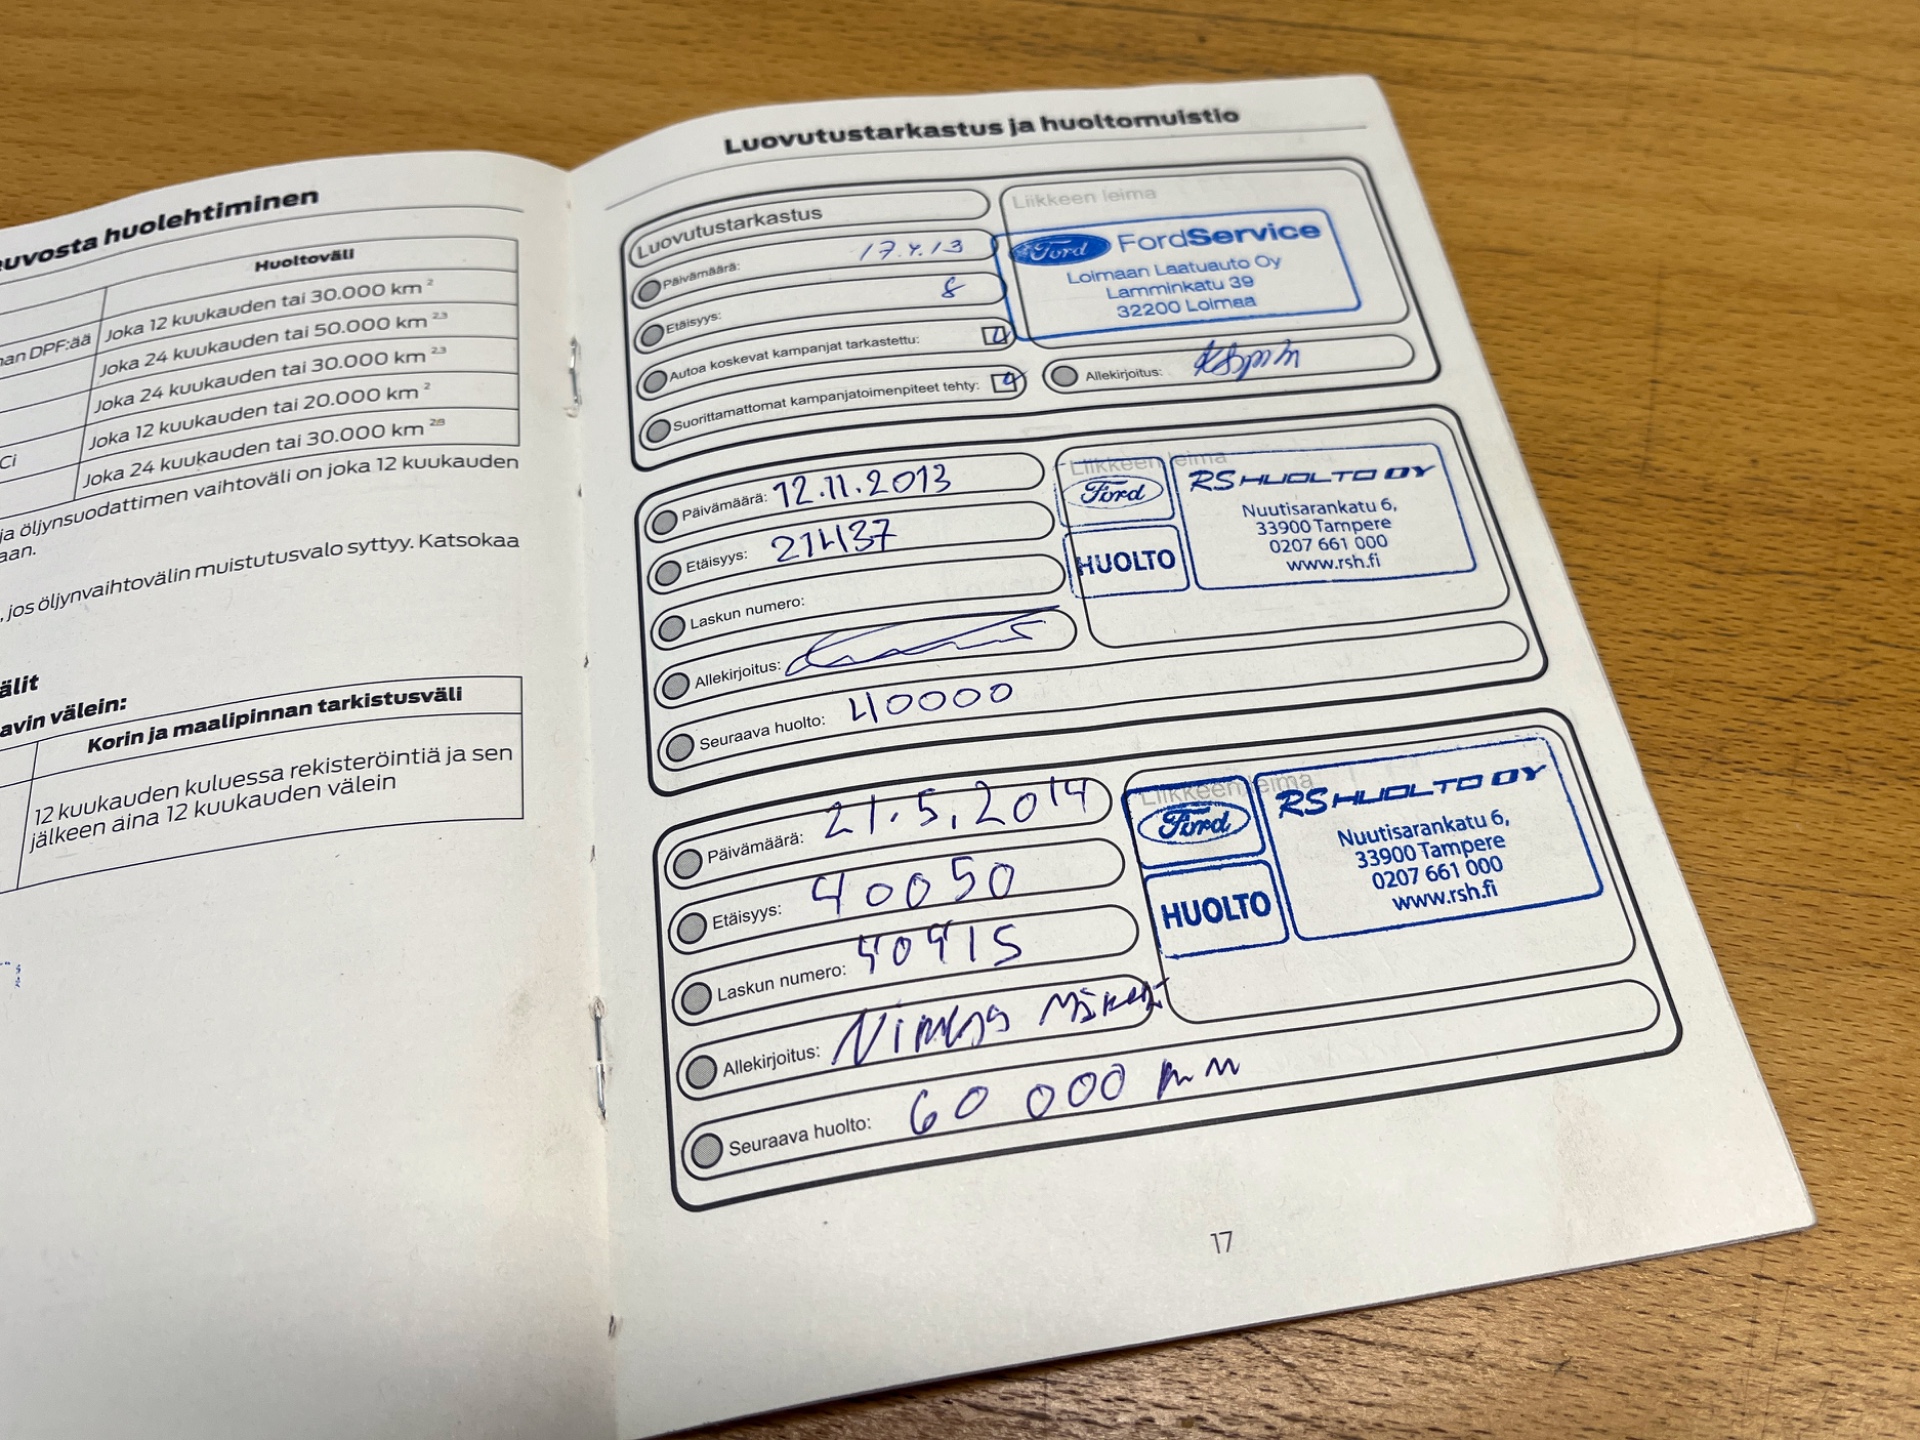 uvosta huolehtiminen
Huoltoväli
Joka 12 kuukauden tai 30.000 km 2
man DPF:ää Joka 24 kuukauden tai 50.000 km 2,3
Joka 24 kuukauden tai 30.000 km 2,3
Joka 12 kuukauden tai 20.000 km 2
Ci Joka 24 kuukauden tai 30.000 km
ja öljynsuodattimen vaihtoväli on joka 12 kuukauden
aan.
, jos öljynvaihtovälin muistutusvalo syttyy. Katsokaa
älit
avin välein:
Korin ja maalipinnan tarkistusväli
12 kuukauden kuluessa rekisteröintiä ja sen
jälkeen aina 12 kuukauden välein
Luovutustarkastus ja huoltomuistio
Luovutustarkastus
Päivämäärä: 17.4.13
Etäisyys: 8
Autoa koskevat kampanjat tarkastettu:
Suorittamattomat kampanjatoimenpiteet tehty:
Liikkeen leima
Ford FordService
Loimaan Laatuauto Oy
Lamminkatu 39
32200 Loimaa
Allekirjoitus:
Päivämäärä: 12.11.2013
Etäisyys: 21437
Laskun numero:
Allekirjoitus:
Seuraava huolto: 40000
Liikkeen leima
Ford
HUOLTO
RS HUOLTO OY
Nuutisarankatu 6,
33900 Tampere
0207 661 000
www.rsh.fi
Päivämäärä: 21.5.2014
Etäisyys: 40050
Laskun numero: 40415
Allekirjoitus:
Seuraava huolto: 60 000
Liikkeen leima
Ford
HUOLTO
RS HUOLTO OY
Nuutisarankatu 6,
33900 Tampere
0207 661 000
www.rsh.fi
17